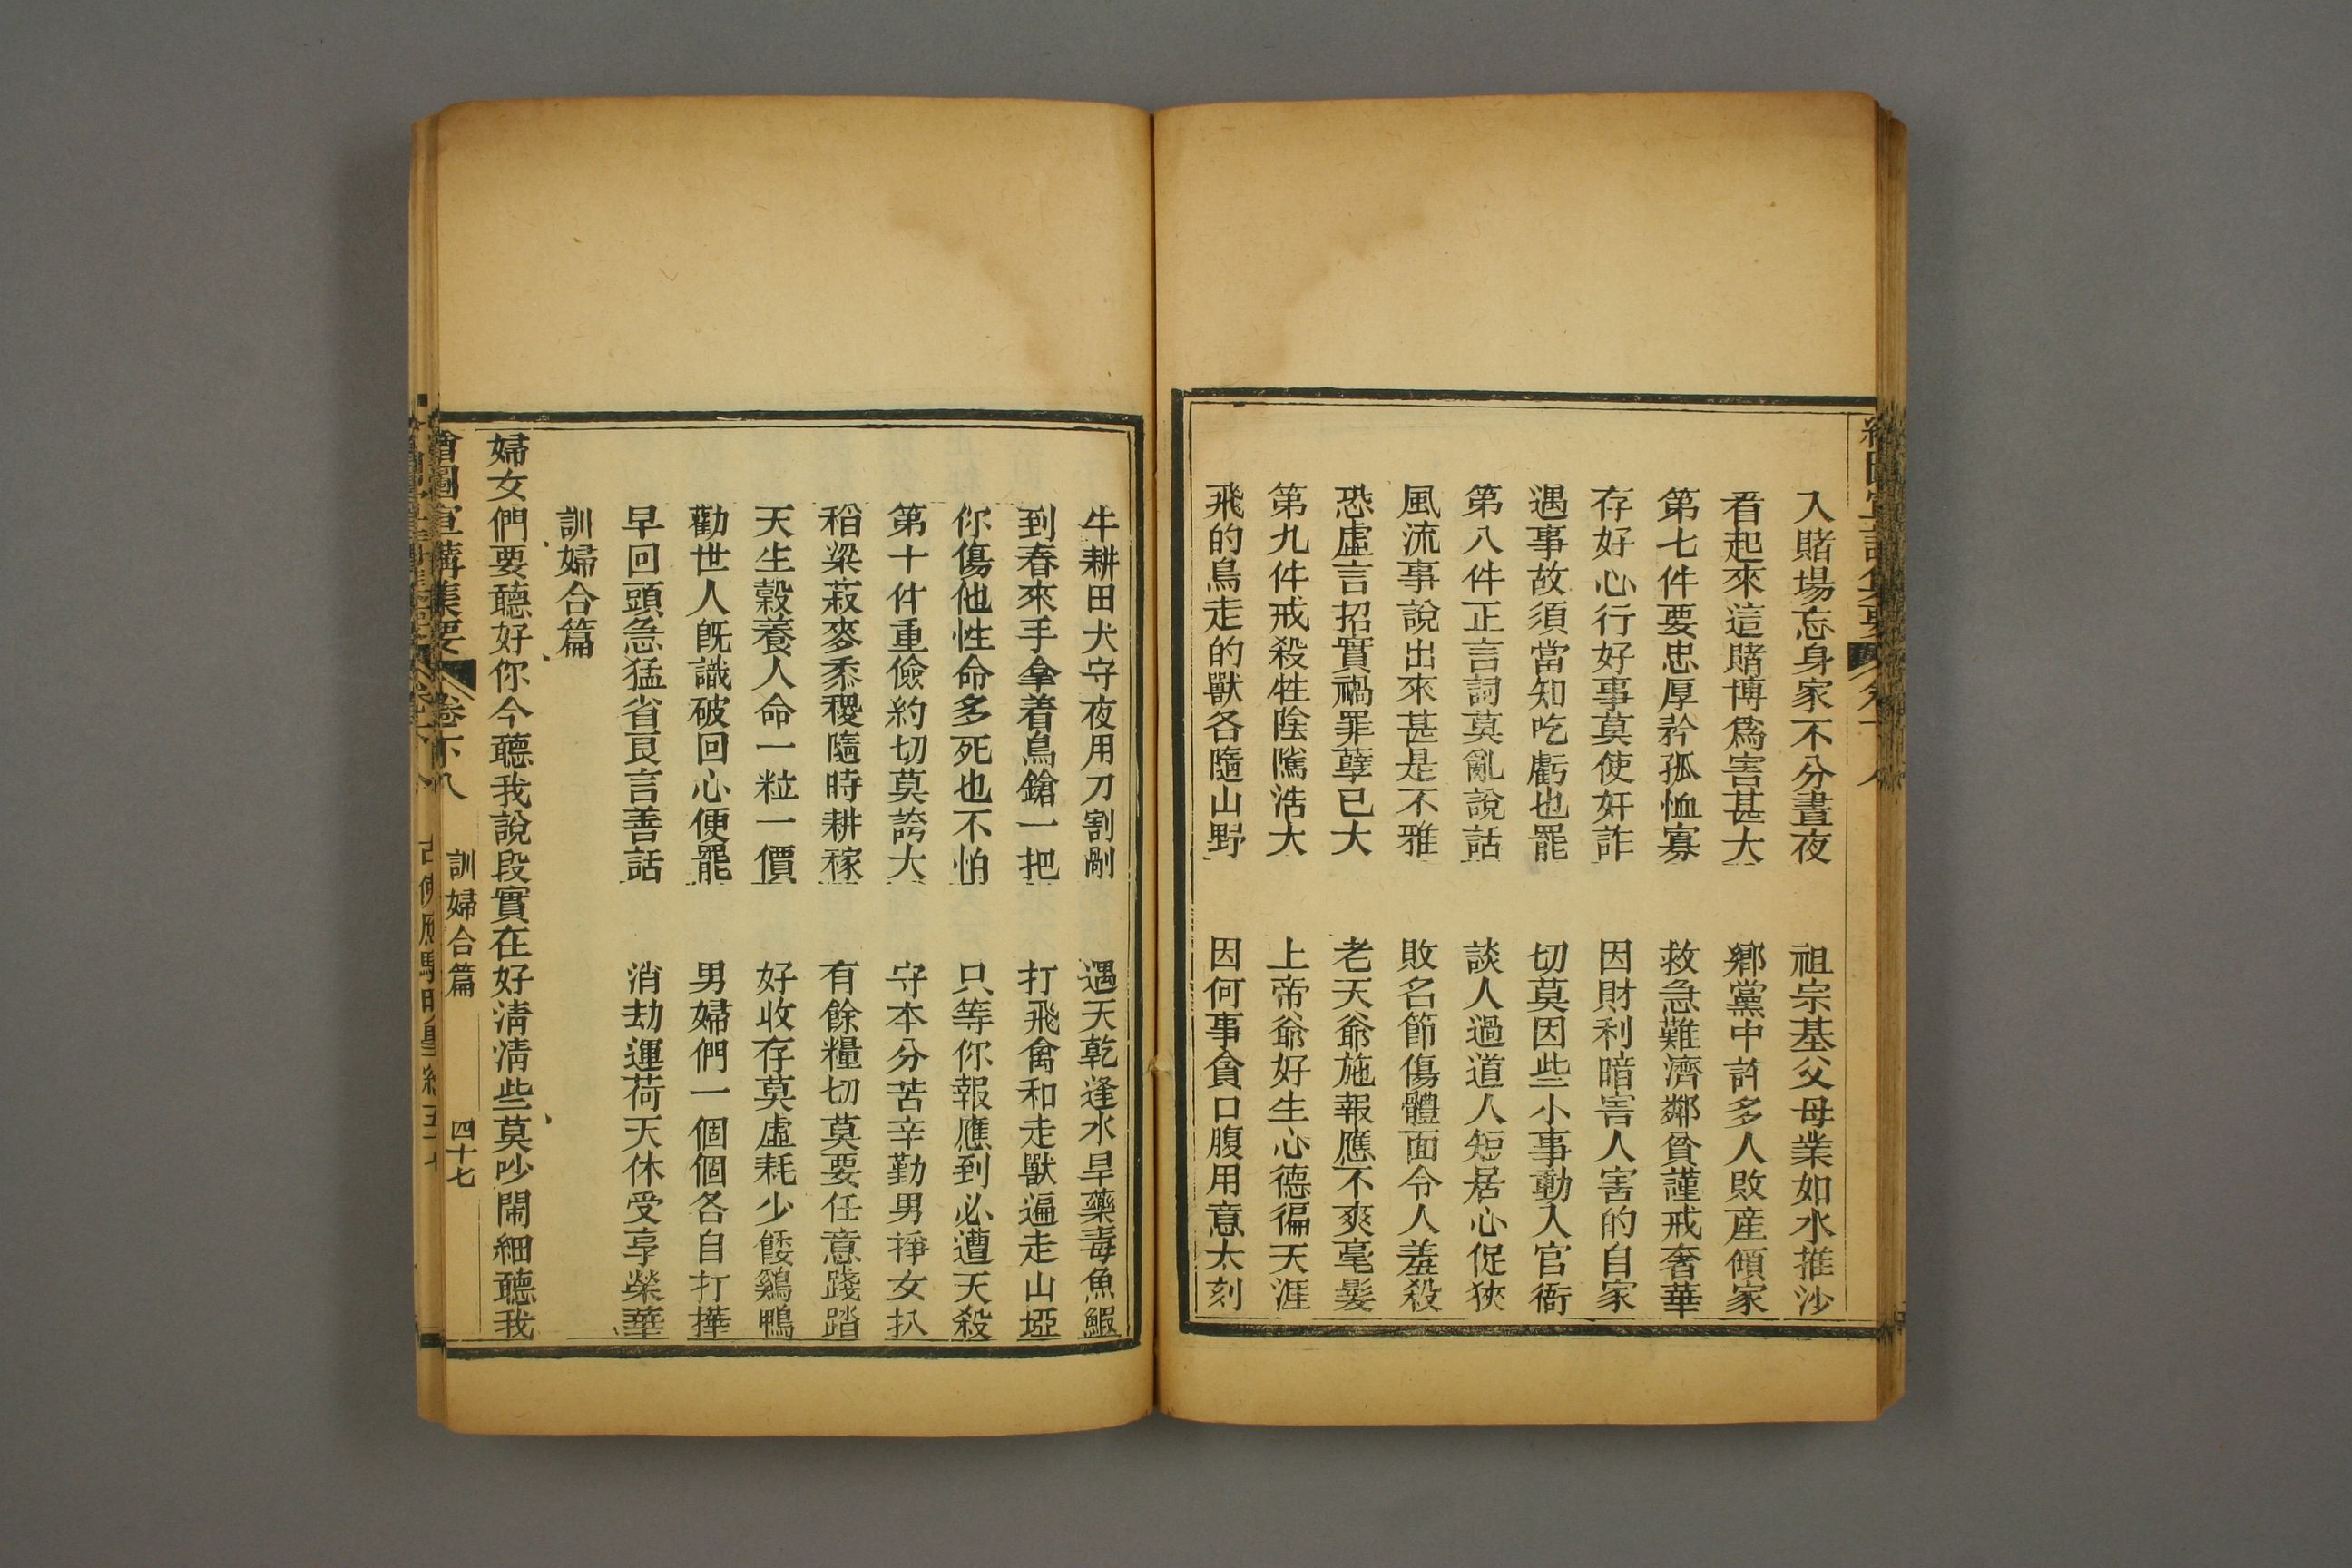 入賭場忘身家不分晝夜　祖宗基父母業如水推沙
看起來這賭博爲害甚大　鄉黨中許多人敗産傾家
第七件要忠厚矜孤恤寡　救急難濟鄰貧謹戒奢華
存好心行好事莫使奸詐　因財利暗害人害的自家
遇事故須當知吃虧也罷　切莫因些小事動入官衙
第八件正言詞莫亂說話　談人過道人短居心促狹
風流事說出來甚是不雅　敗名節傷體面令人羞殺
恐虛言招實禍罪孽已大　老天爺施報應不爽毫髮
第九件戒殺牲陰隲浩大　上帝爺好生心德徧天涯
飛的鳥走的獸各隨山野　因何事貪口腹用意太刻
牛耕田犬守夜用刀割剮　遇天乾逢水旱藥毒魚鰕
到春來手拿着鳥鎗一把　打飛禽和走獸遍走山埡
你傷他性命多死也不怕　只等你報應到必遭天殺
第十件重儉約切莫誇大　守本分苦辛勤男掙女扒
稻粱菽麥黍稷隨時耕稼　有餘糧切莫要任意踐踏
天生穀養人命一粒一價　好收存莫虛耗少餧鷄鴨
勸世人旣識破回心便罷　男婦們一個個各自打擇
早回頭急猛省良言善話　消劫運荷天休受享榮華
訓婦合篇
婦女們要聽好你今聽我說段實在好清清些莫吵鬧細聽我
繪圖宣講集要　卷下八　訓婦合篇　四十七